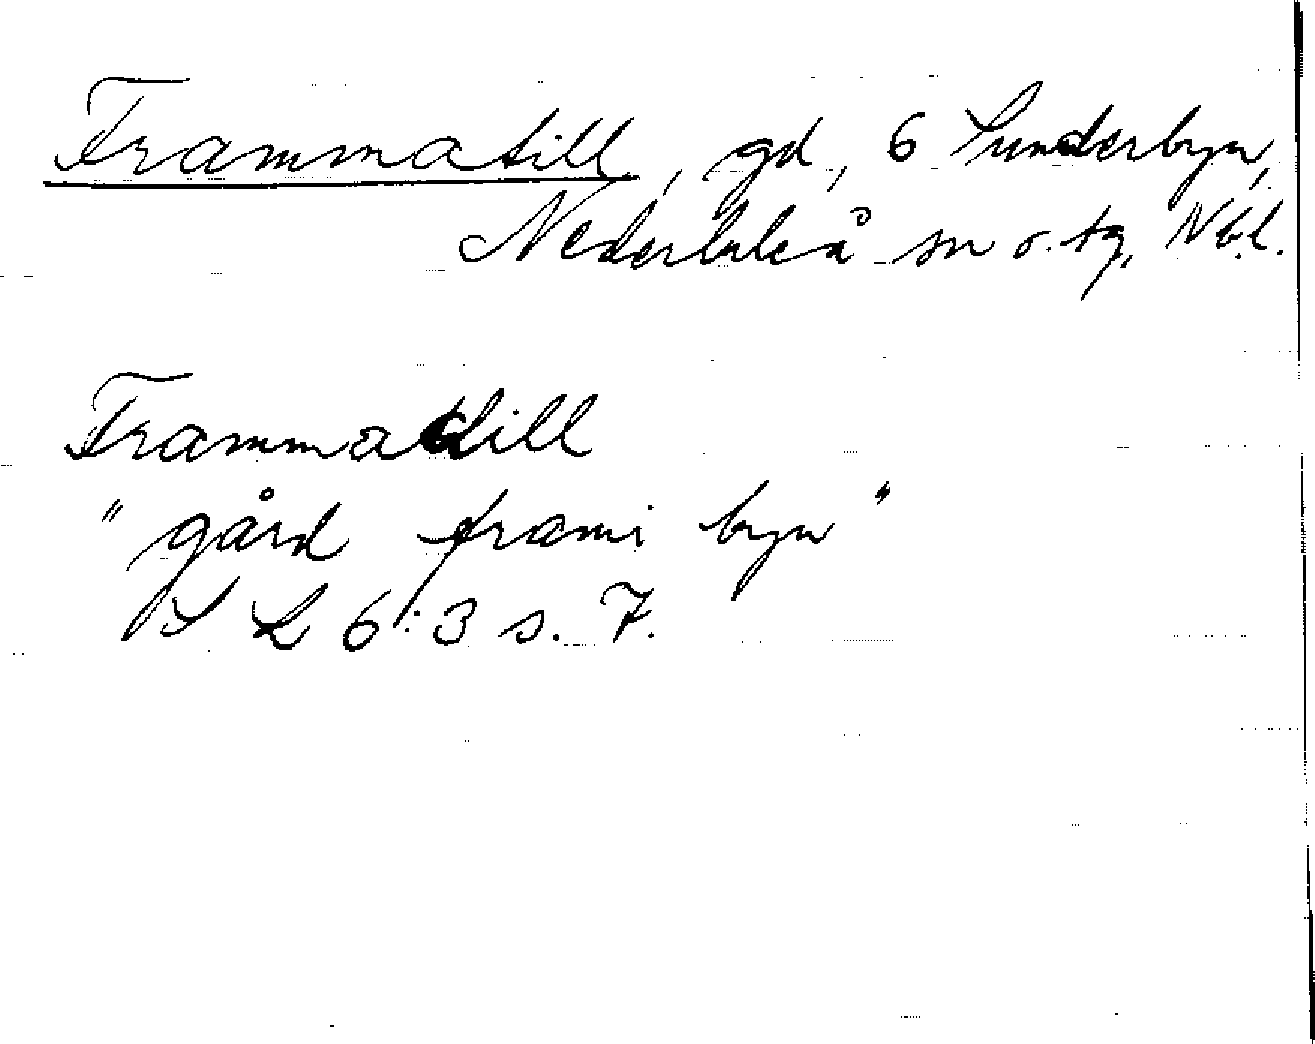 Frammatill, gd, 6 Sunderbyn,
Nederluleå sn o. tg, Nbl.
Frammatill
"gård frami byn"
SL 6:3 s. 7.